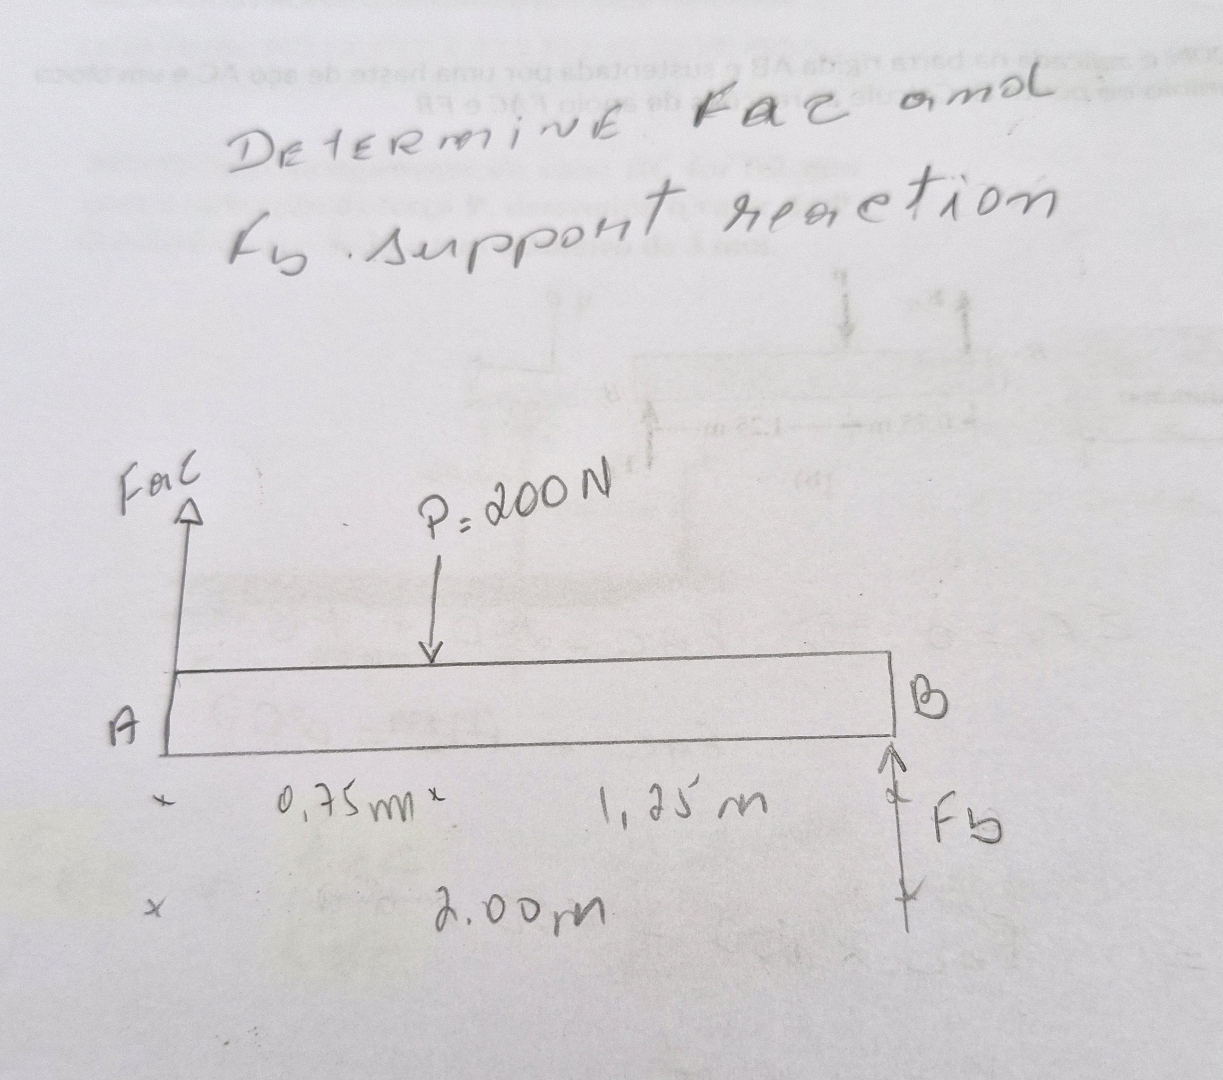 DETERMINE Fac and
Fb support reaction
Fac
P=200N
A
B
0,75m
1,25m
Fb
2.00m